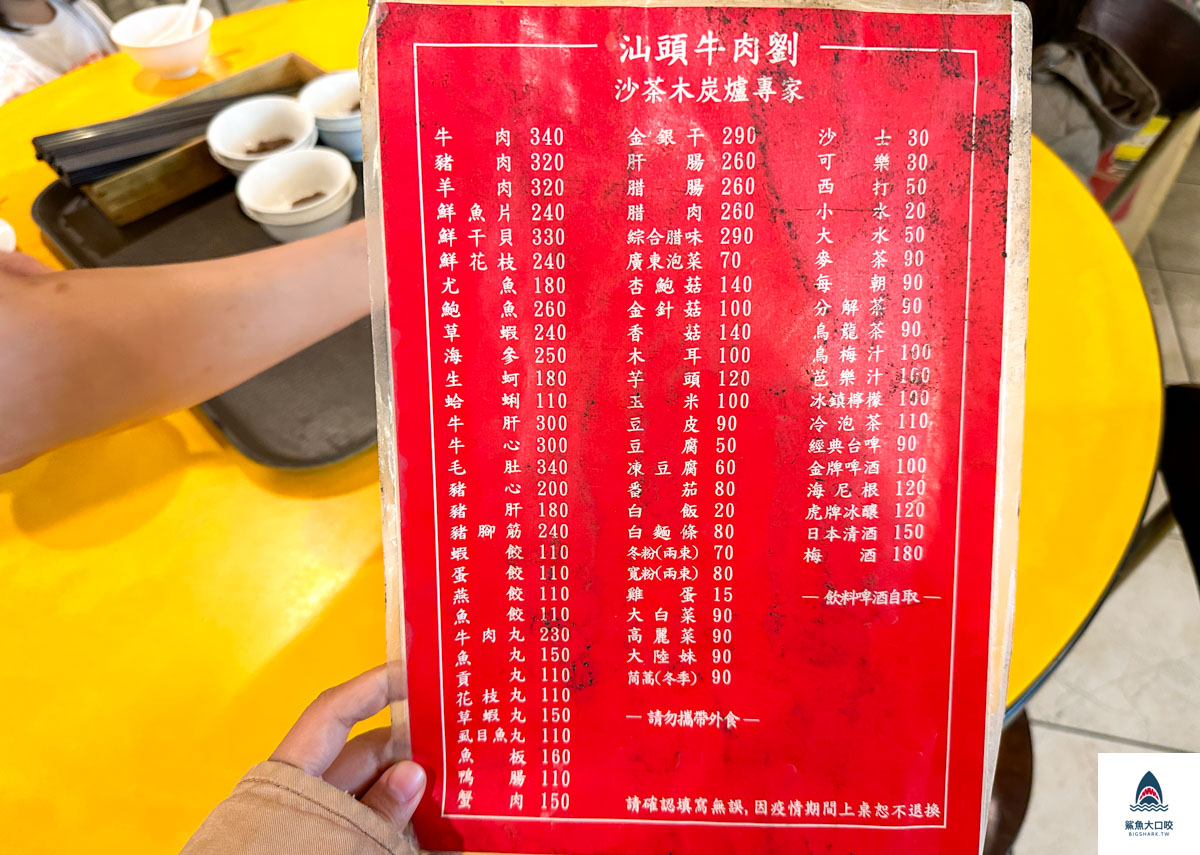 汕頭牛肉劉
沙茶木炭爐專家
牛肉 340
豬肉 320
羊肉 320
鮮魚片 240
鮮干貝 330
鮮花枝 240
尤魚 180
鮑魚 260
草蝦 240
海參 250
生蚵 180
蛤蜊 110
牛肝 300
牛心 300
毛肚 340
豬心 200
豬肝 180
豬腳筋 240
蝦餃 110
蛋餃 110
燕餃 110
魚餃 110
牛肉丸 230
魚丸 150
貢丸 110
花枝丸 110
草蝦丸 150
虱目魚丸 110
魚板 160
鴨腸 110
蟹肉 150
金銀干 290
肝腸 260
腊腸 260
腊肉 260
綜合腊味 290
廣東泡菜 70
杏鮑菇 140
金針菇 100
香菇 140
木耳 100
芋頭 120
玉米 100
豆皮 90
豆腐 50
凍豆腐 60
番茄 80
白飯 20
白麵條 80
冬粉(兩束) 70
寬粉(兩束) 80
雞蛋 15
大白菜 90
高麗菜 90
大陸妹 90
茼萵(冬季) 90
— 請勿攜帶外食 —
沙士 30
可樂 30
西打 50
小水 20
大水 50
麥茶 90
每朝 90
分解茶 90
烏龍茶 90
烏梅汁 100
芭樂汁 100
冰鎮檸檬 100
冷泡茶 110
經典台啤 90
金牌啤酒 100
海尼根 120
虎牌冰釀 120
日本清酒 150
梅酒 180
— 飲料啤酒自取 —
請確認填寫無誤,因疫情期間上桌恕不退換
鯊魚大口咬
BIGSHARK.TW